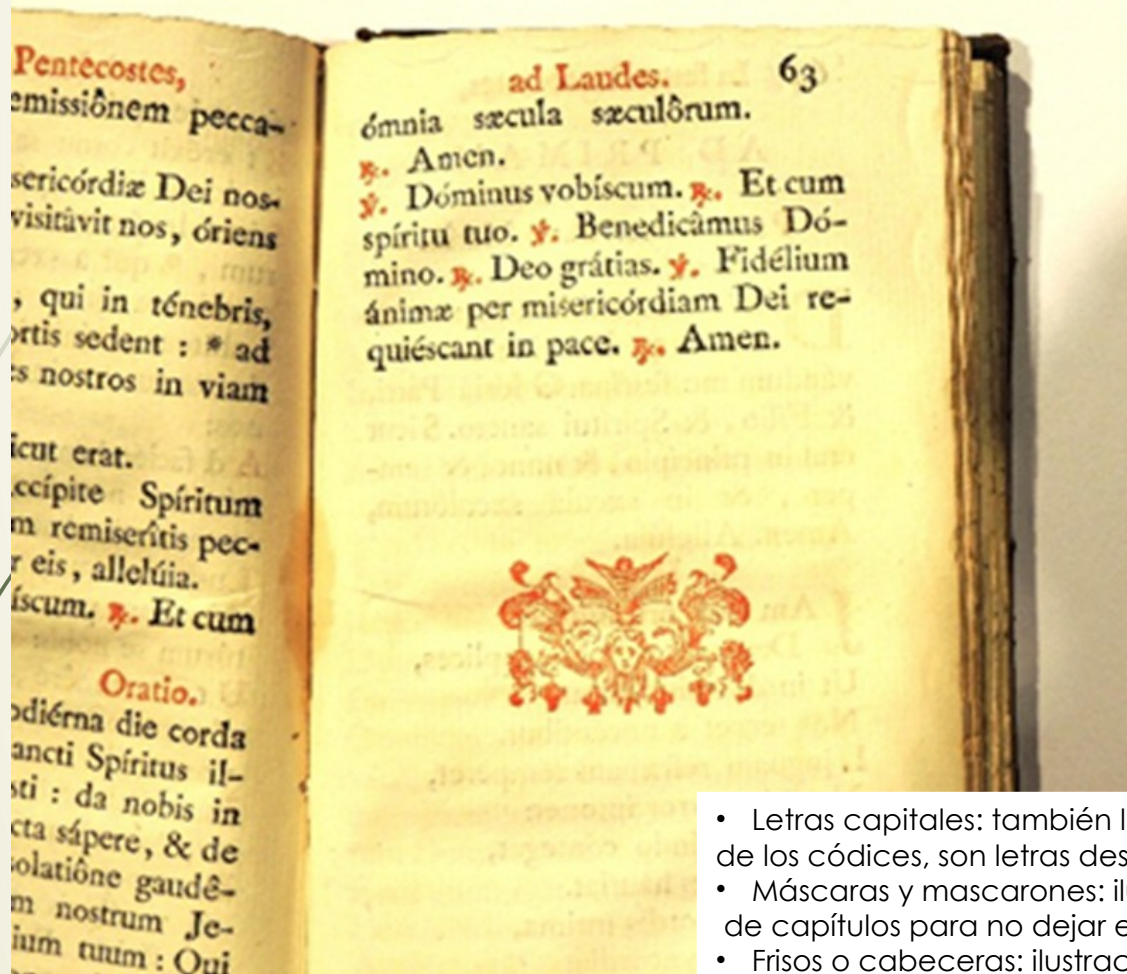 Pentecostes,
emissiônem pecca-
sericórdiæ Dei nos-
visitâvit nos, óriens
, qui in ténebris,
ortis sedent : * ad
s nostros in viam
icut erat.
ccípite Spíritum
m remiserîtis pec-
r eis, allelúia.
íscum. ℟. Et cum
Oratio.
odiérna die corda
ancti Spíritus il-
sti : da nobis in
cta sápere, & de
solatiône gaudê-
m nostrum Je-
ium tuum : Qui
ad Laudes. 63
ómnia sæcula sæculôrum.
℟. Amen.
℣. Dóminus vobíscum. ℟. Et cum
spíritu tuo. ℣. Benedicâmus Dó-
mino. ℟. Deo grátias. ℣. Fidélium
ánimæ per misericórdiam Dei re-
quiéscant in pace. ℟. Amen.
• Letras capitales: también l
de los códices, son letras des
• Máscaras y mascarones: il
de capítulos para no dejar e
• Frisos o cabeceras: ilustrac